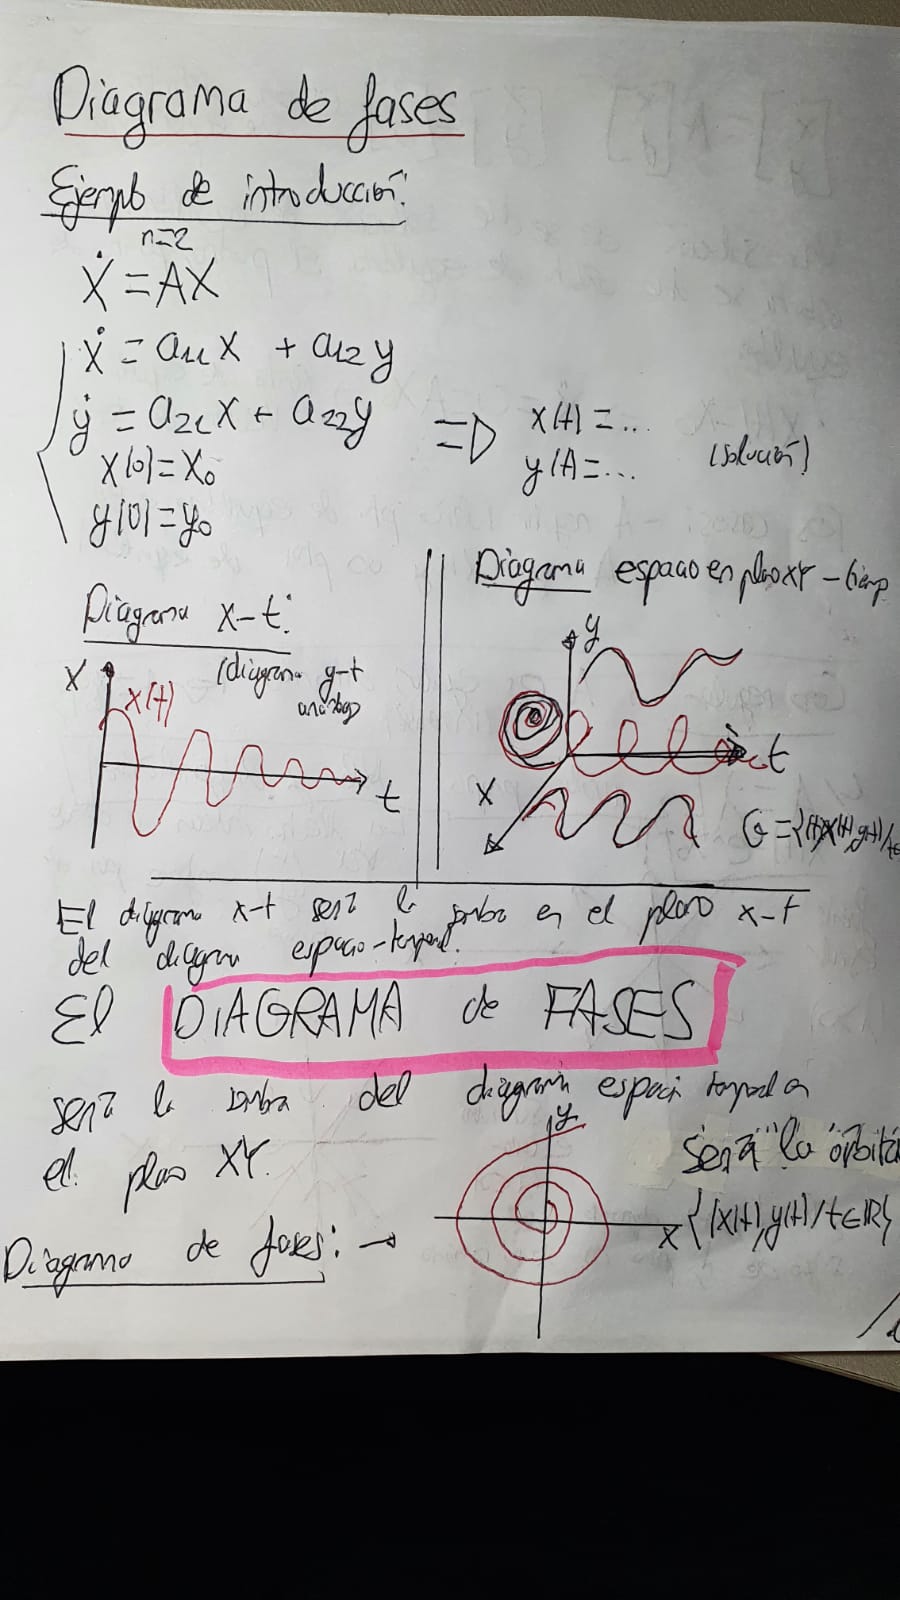 Diagrama de fases
Ejemplo de introducción:
n=2
Ẋ = AX
ẋ = a₁₁x + a₁₂y
ẏ = a₂₁x + a₂₂y
x(0)=x₀
y(0)=y₀
=> x(t)=...
y(t)=... (solución)
Diagrama x-t:
(diagrama y-t
análogo)
x
x(t)
t
Diagrama espacio en plano XY - tiemp
y
t
x
G={(t,x(t),y(t))/t∈
El diagrama x-t será la sombra en el plano x-t
del diagrama espacio-temporal.
El DIAGRAMA de FASES
será la sombra del diagrama espacio temporal en
el plano XY.
Será "la órbita
{(x(t),y(t)/t∈ℝ}
Diagrama de fases: →
y
x